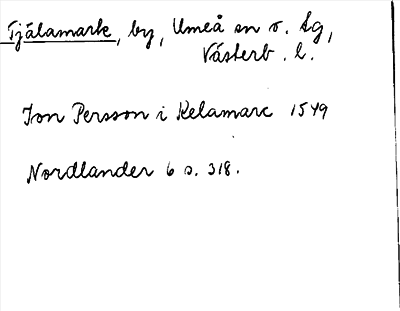 Tjålamark, by, Umeå sn o. tg,
Västerb. l.
Jon Persson i Kelamarc 1549
Nordlander 6 s. 318.